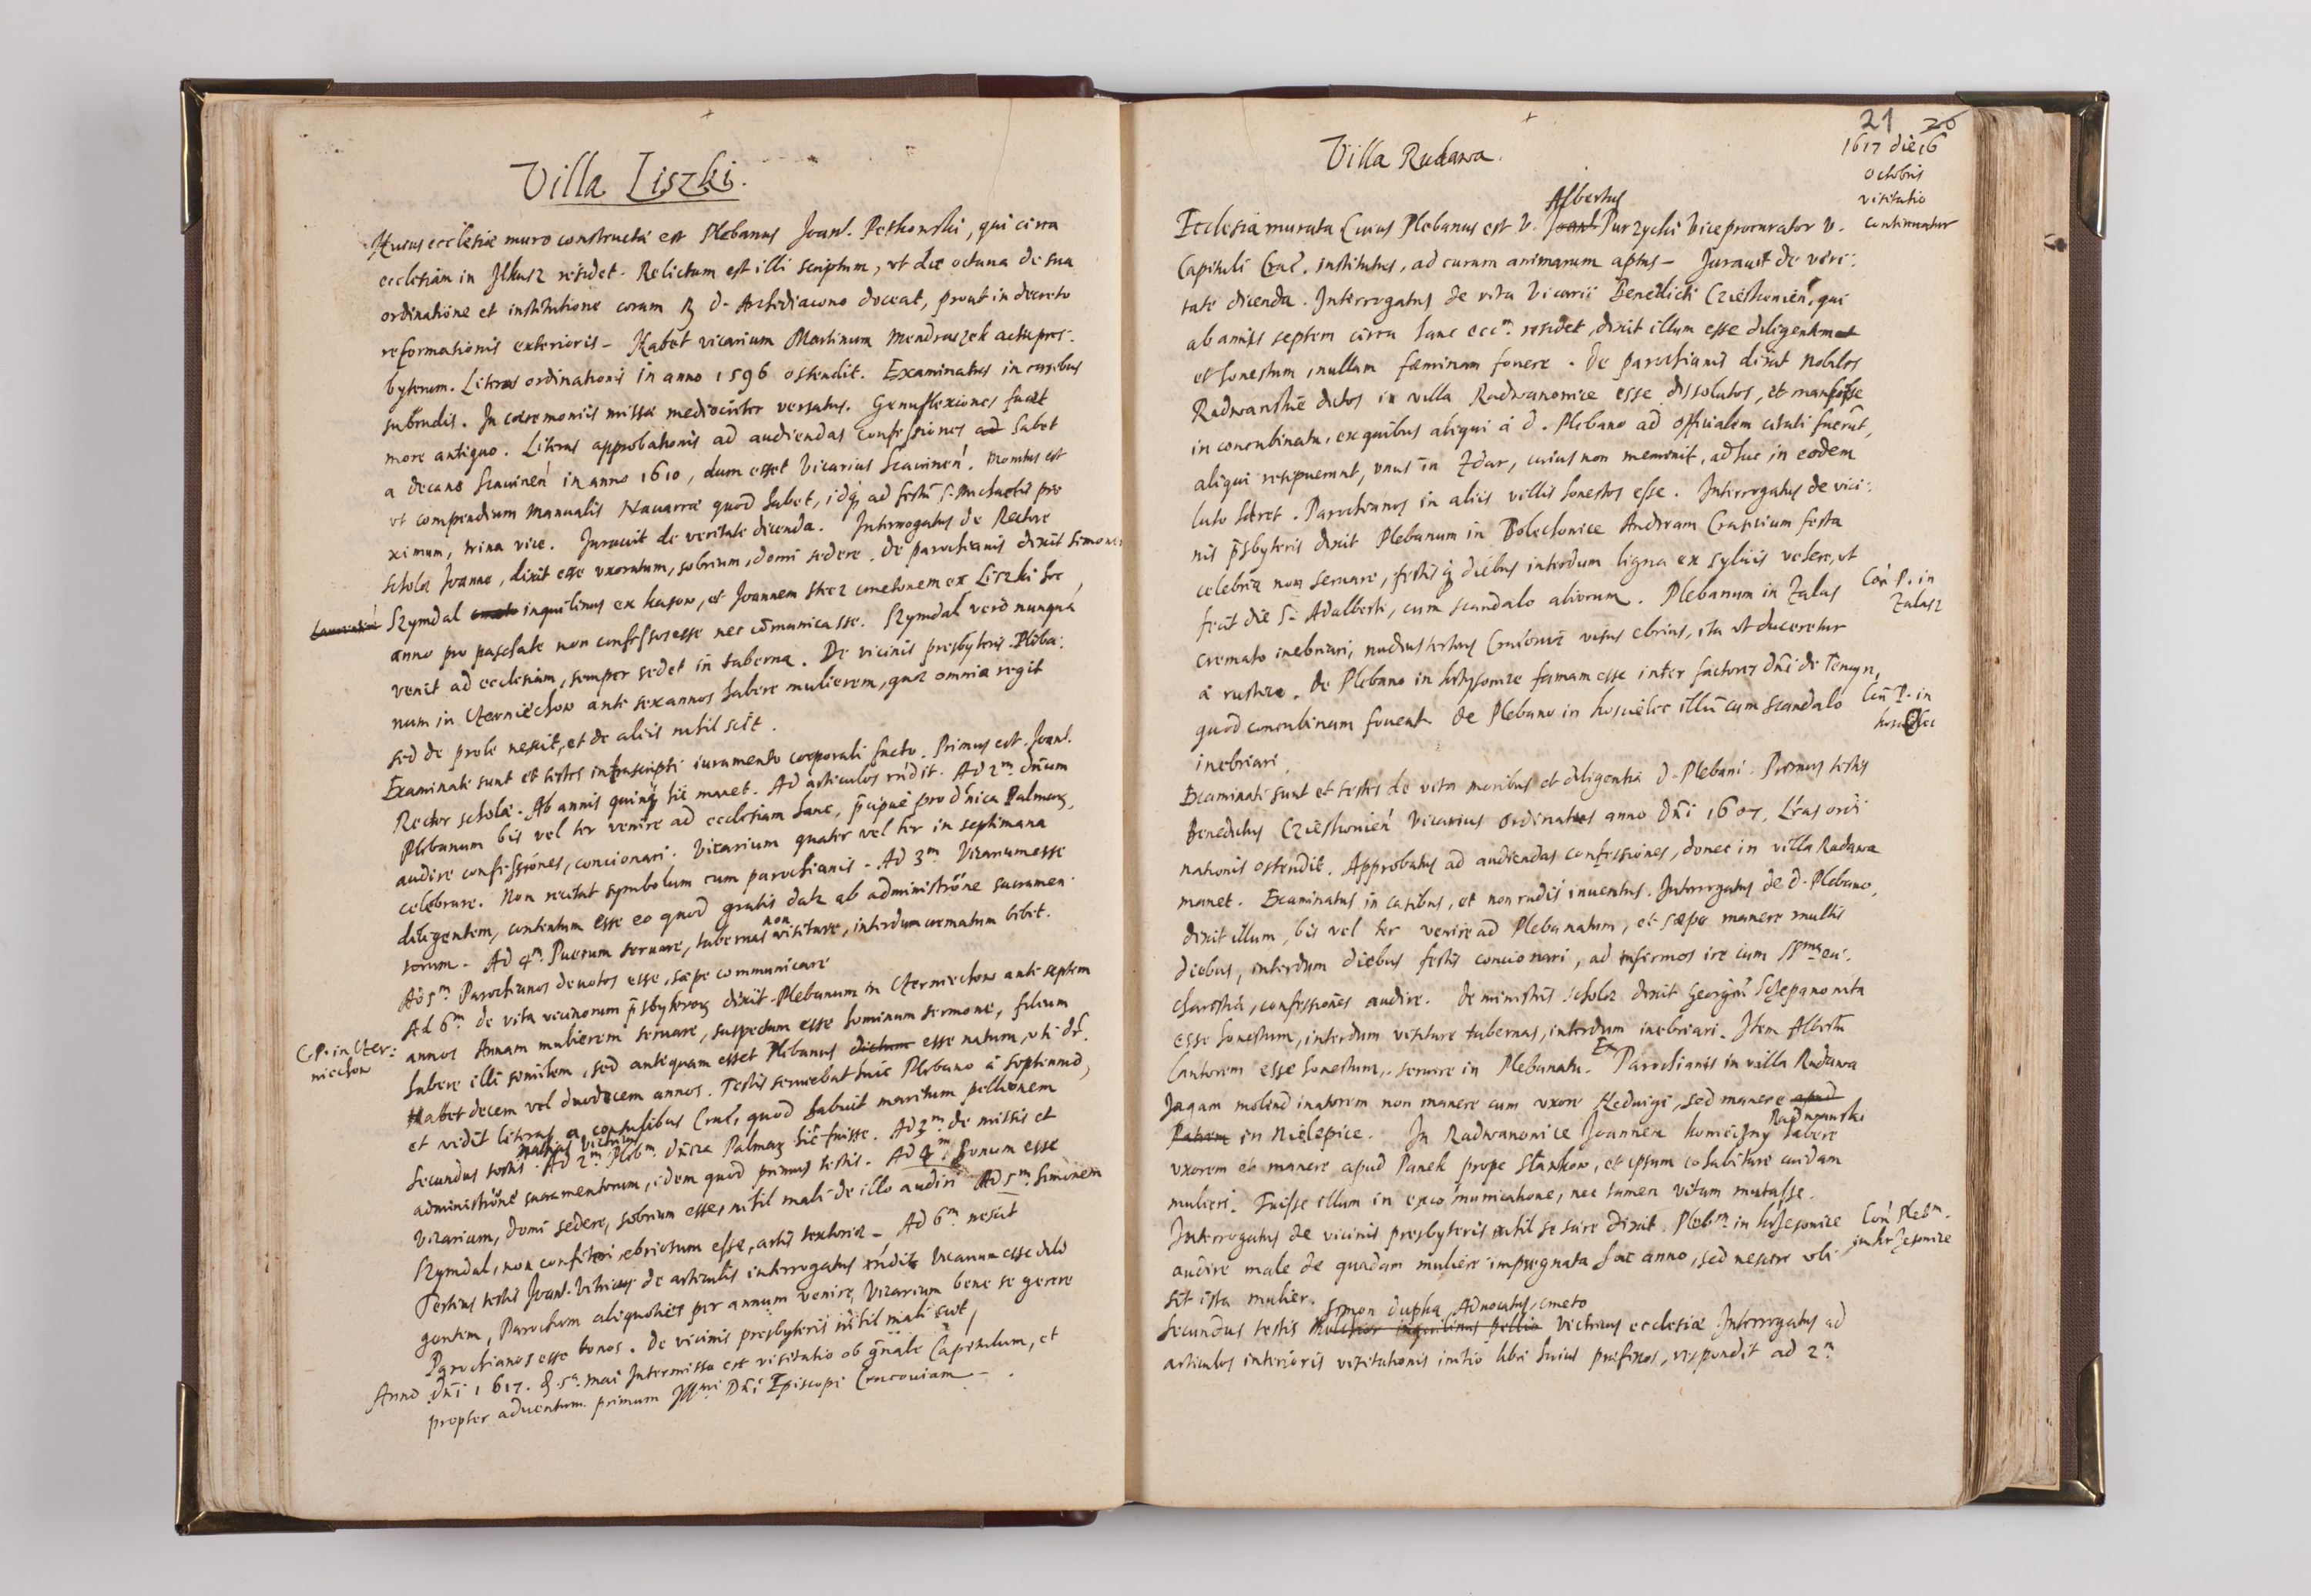 Villa Liszki.
Huius ecclesiæ muro constructæ est Plebanus Joan. Petkowski, qui circa
ecclesiam in Ilkusz residet. Relictum est illi scriptum, vt die octaua de sua
ordinatione et institutione coram R. d. Archidiacono doceat, prout in decreto
reformationis exterioris - Habet vicarium Martinum Mendraszek actu pres:
byterum. Literas ordinationis in anno 1596 ostendit. Examinatus in casibus
subrudis. In cæremoniis missæ mediocriter versatus. Genuflexiones facit
more antiquo. Literas approbationis ad audiendas confessiones ad habet
a decano Scauinen in anno 1610, dum esset Vicarius Scauinen. Monitus est
vt compendium Manualis Nauarræ quod habet, idq ad festu S. Michaelis pro
ximum, trina vice. Jurauit de veritate dicenda. Interrogatus de Rectore
scholæ Joanne, dixit esse vxoratum, sobrium, domi sedere. De parochianis dixit Simonem
Szymdal inquilinus ex kaszow, et Joannem cmetonem ex Liszki hoc
anno pro paschate non confessos esse nec comunicasse. Szymdal vero nunqua
venit ad ecclesiam, semper sedet in taberna. De vicinis presbyteris. Pleba:
num in Czernichow ante sex annos habere mulierem, quæ omnia regit
sed de prole nescit, et de aliis nihil scit.
Examinati sunt et testes infrascripti iuramento corporali facto. Primus est. Joan.
Rector scholæ. Ab annis quinq hic manet. Ad articulos rndit. Ad 2m dnum
Plebanum bis vel ter venire ad ecclesiam hanc, pcipuè pro dnica Palmarum,
audire confessiones, concionari. Vicarium quater vel ter in septimana
celebrare. Non recitat symbolum cum parochianis. Ad 3m Vicarium esse
diligentem, contentum esse eo quod gratis datur ab administrone sacramen
torum. Ad 4m Puerum seruare, tabernas non visitare, interdum crematum bibet.
Ad 5m Parochianos deuotos esse, sæpe communicare
Ad 6m de vita vicinorum psbyterorum dixit Plebanum in Czernichow ante septem
C. P. in Czer:
nichow
annos Annam mulierem seruare, suspectum esse hominum sermone, filium
habere illi similem, sed antequam esset Plebanus dictum esse natum, vti dr.
Habet decem vel duodecem annos. Testis seruiebat huic Plebano à septennio,
et vidit literas a consulibus Crac, quod habuit maritum pellionem
Secundus testis Mathias Vietrius. Ad 2m Plebm. dnica Palmarum hic fuisse. Ad 3m de missis et
administrone sacramentorum, idem quod primus testis. Ad 4m bonum esse
vicarium, domi sedere, sobrium esse, nihil mali de illo audiri Ad 5m Simonem
Szymdal, non confiteri, ebriosum esse, artis textoriæ - Ad 6m nescit
Tertius testis Joan. Vitricus de articulis interrogatus rndit Vicarium esse dili
gentem, Parochum aliquoties per annum venire, Vicarium bene se gerere
Parochianos esse bonos. De vicinis presbyteris nihil mali scit,
Anno dni 1617. 5a. Mai Intermissa est visitatio ob gnale Capitulum, et
propter aduentum primum Illmi Dni Episcopi Cracouiam - .
21 26
1617 die 16
octobris
visitatio
continuatur
Villa Rudawa.
Ecclesia murata Cuius Plebanus est V. Joan Albertus Purzycki Viceprocurator V.
Capituli Crac. institutus, ad curam animarum aptus - Jurauit de veri:
tate dicenda. Interrogatus de vita Vicarii Benedicti Czieskonien, qui
ab annis septem circa hanc eccm. residet, dixit illum esse diligentem et
et honestum, nullam fæminam fouere. De parochianis dixit Nobiles
Radwanskie dictos in villa Radwanowice esse dissolutos, et mansisse
in concubinatu, ex quibus aliqui à d. Plebano ad officialem citati fuerut,
aliqui resipuerunt, vnus in Zdar, cuius non meminit, adhuc in eodem
luto hæret. Parochianos in aliis villis honestos esse. Interrogatus de vici:
nis psbyteris dixit Plebanum in Bolechowice Andream Crassium festa
celebria non seruare, festisq diebus interdum ligna ex syluis vehere, vt
fecit die S. Adalberti, cum scandalo aliorum. Plebanum in Zalas
Con P. in
Zalasz
cremato inebriari, nudiustertius Cracouiæ visus ebrius, ita vt duceretur
à rustico. De Plebano in krzesowice famam esse inter factores dni de Tenczyn,
quod concubinam foueat. De Plebano in kosciélec illu cum scandalo
Con P. in
kosciélec
inebriari.
Examinati sunt et testes de vita moribus et diligentia d. Plebani. Primus testis
Benedictus Czieskonien Vicarius ordinatus anno Dni 1607. Lras ordi
nationis ostendit. Approbatus ad audiendas confessiones, donec in villa Rudawa
manet. Examinatus in casibus, et non rudis inuentus. Interrogatus de d. Plebano,
dixit illum, bis vel ter venire ad Plebanatum, et sæpe manere multis
diebus, interdum diebus festis concionari, ad infirmos ire cum SSma eu:
charistia, confessiones audire. De ministris scholæ dixit Georgiu Sczepanowita
esse honestum, interdum visitare tabernas, interdum inebriari. Item Albertu
Cantorem esse honestum, seruire in Plebanatu. Ex Parochianis in villa Rudawa
Jagam molendinatorem non manere cum vxore Heduigi, sed manere apud
Patrem in Nielepice. In Radwanowice Joannem komiczny Radwanski habere
vxorem et manere apud Panek prope Stankow, et ipsum cohabitare cuidam
mulieri. Fuisse illum in excommunicatione, nec tamen vitam mutasse.
Interrogatus de vicinis presbyteris nihil se scire dixit. Plebm in krzesowice
Con Plebm.
in krzesowice
audire male de quadam muliere impregnata hoc anno, sed nescire vbi
sit ista mulier.
Secundus testis Melchior inquilinus pellio Simon dupka, Aduocatus, cmeto Vitricus ecclesiæ. Interrogatus ad
articulos interioris visitationis initio libri huius præfixos, respondit ad 2m